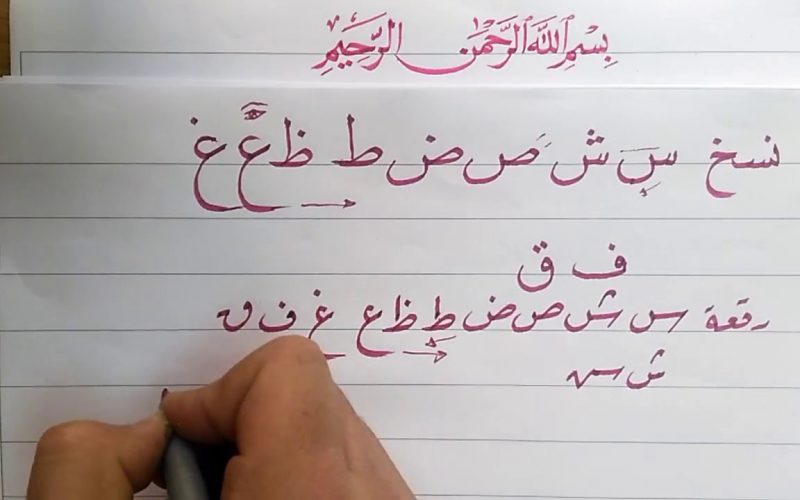 بِسْمِ اللَّهِ الرَّحْمَنِ الرَّحِيمِ
نسخ سَِ ش صَ ض ط ظ عَّ غ
ف ق
رقعة س ش ص ض ط ظ ع غ ف ق
ش س